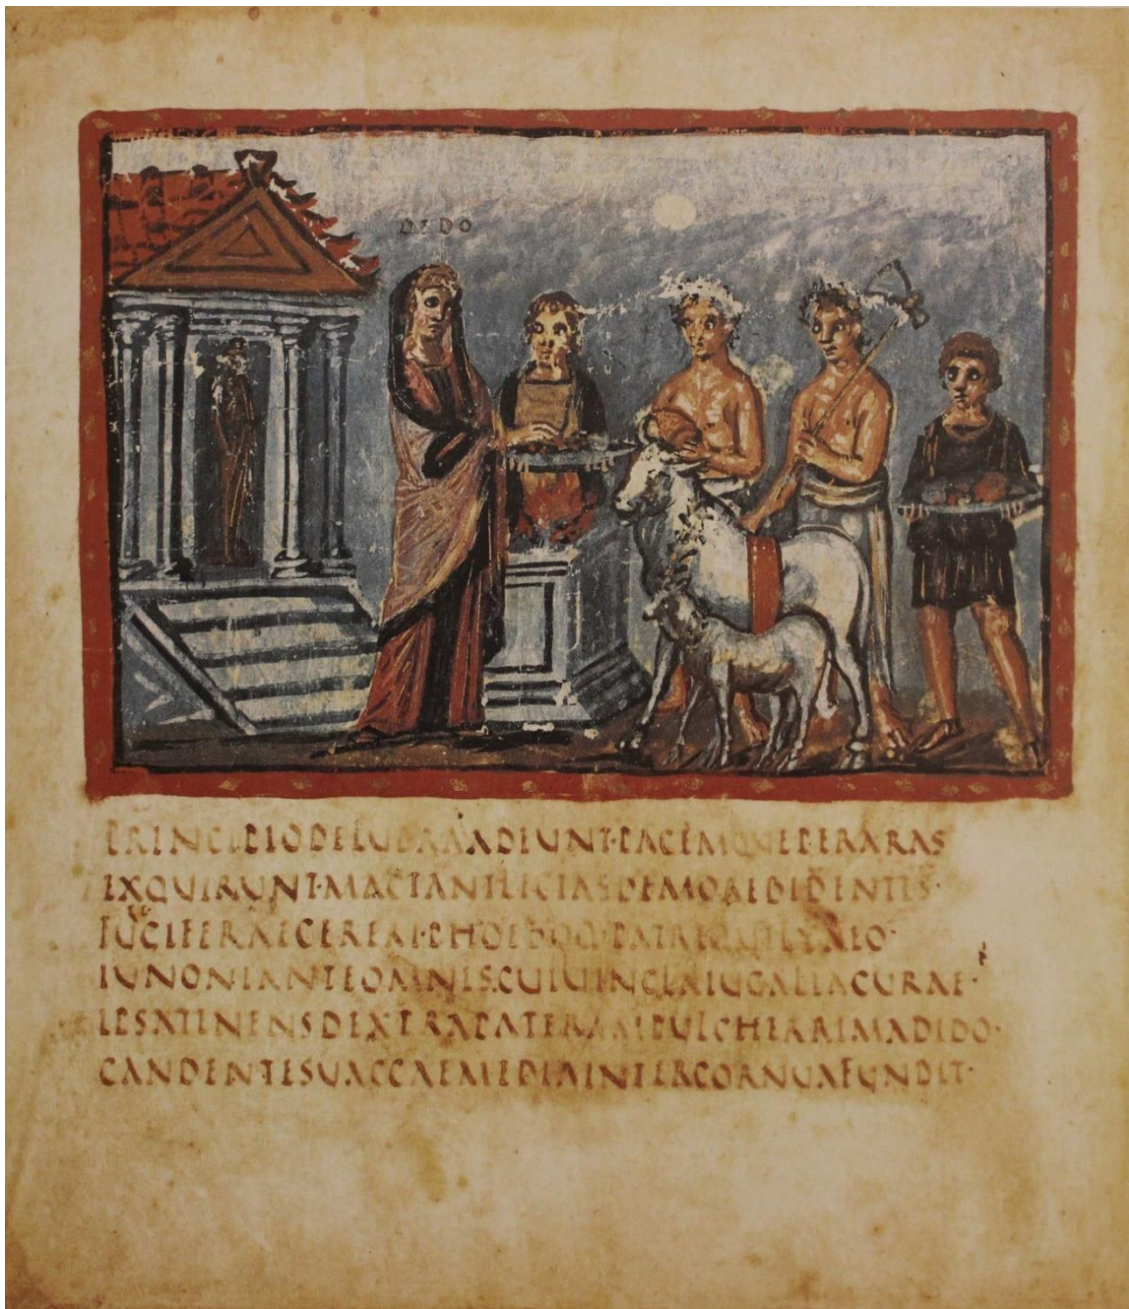 DIDO
PRINCIPIODELUBRAADIUNT·PACEMQUEPERARAS
EXQUIRUNT·MACTANTLECTASDEMOREBIDENTES·
CERERI·PHOEBOQ·PATRIQUELYAEO·
IUNONIANTEOMNIS·CUIUINCLAIUGALIACURAE·
IPSATENENSDEXTRAPATERAMPULCHERRIMADIDO·
CANDENTESUACCAEMEDIAINTERCORNUAFUNDIT·